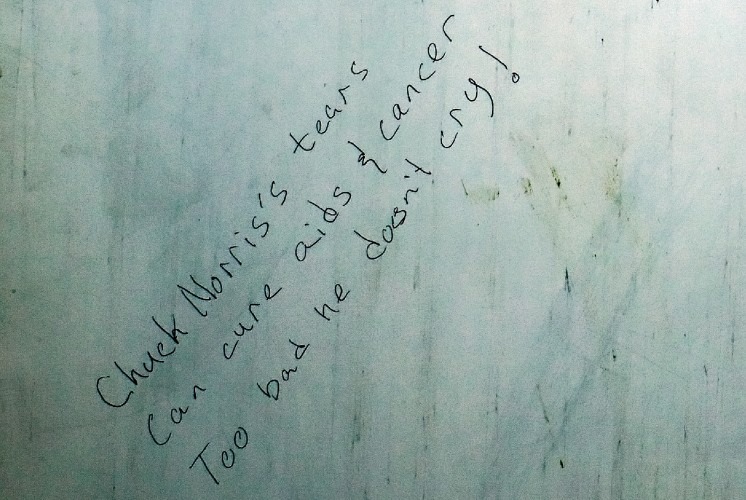 Chuck Norris's tears
Can cure aids & cancer
Too bad he doesn't cry!